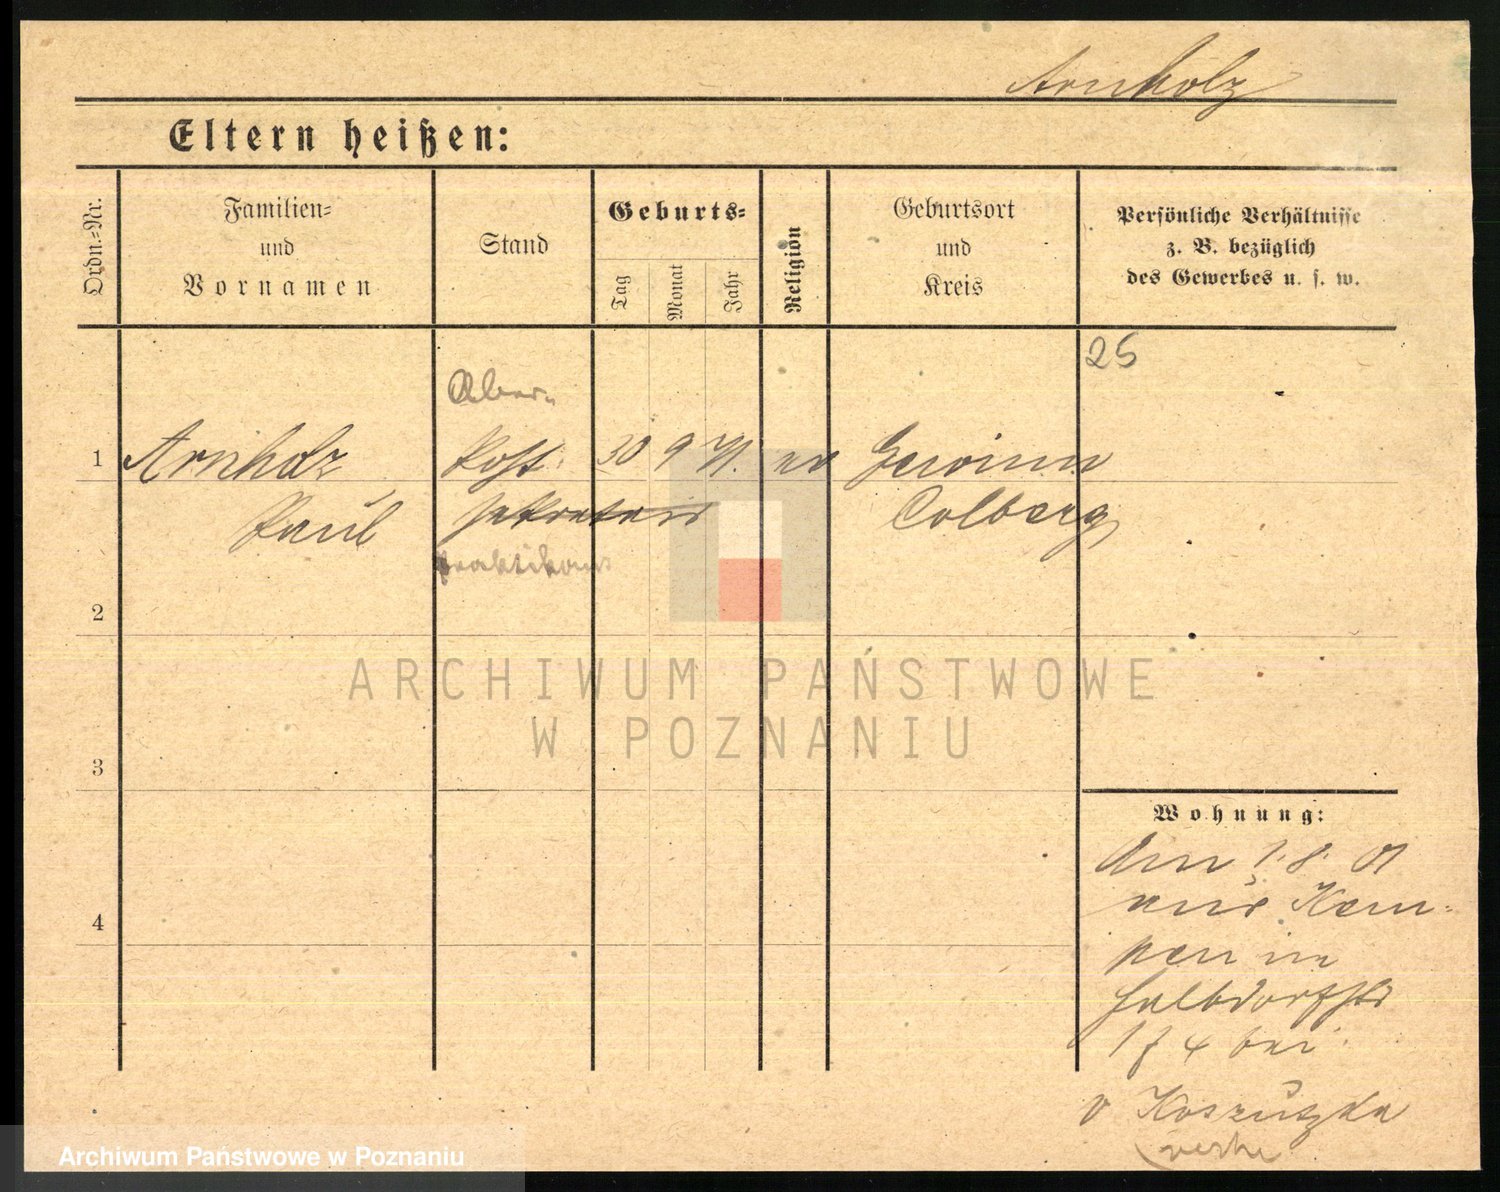 Arnholz
Eltern heißen:
Ordn.-Nr.
Familien-
und
Vornamen
Stand
Geburts-
Tag
Monat
Jahr
Religion
Geburtsort
und
Kreis
Persönliche Verhältnisse
z. B. bezüglich
des Gewerbes u. s. w.
25
Ober-
1 Arnholz Post 30 9 71. ev Gervinn
Paul sekretair Colberg
praktikant
2
ARCHIWUM PAŃSTWOWE
W POZNANIU
3
4
Wohnung:
Am 1. 8. 01
aus Kem-
pen in
Halbdorfstr
1 f 4 bei
v Koszutzka
Archiwum Państwowe w Poznaniu